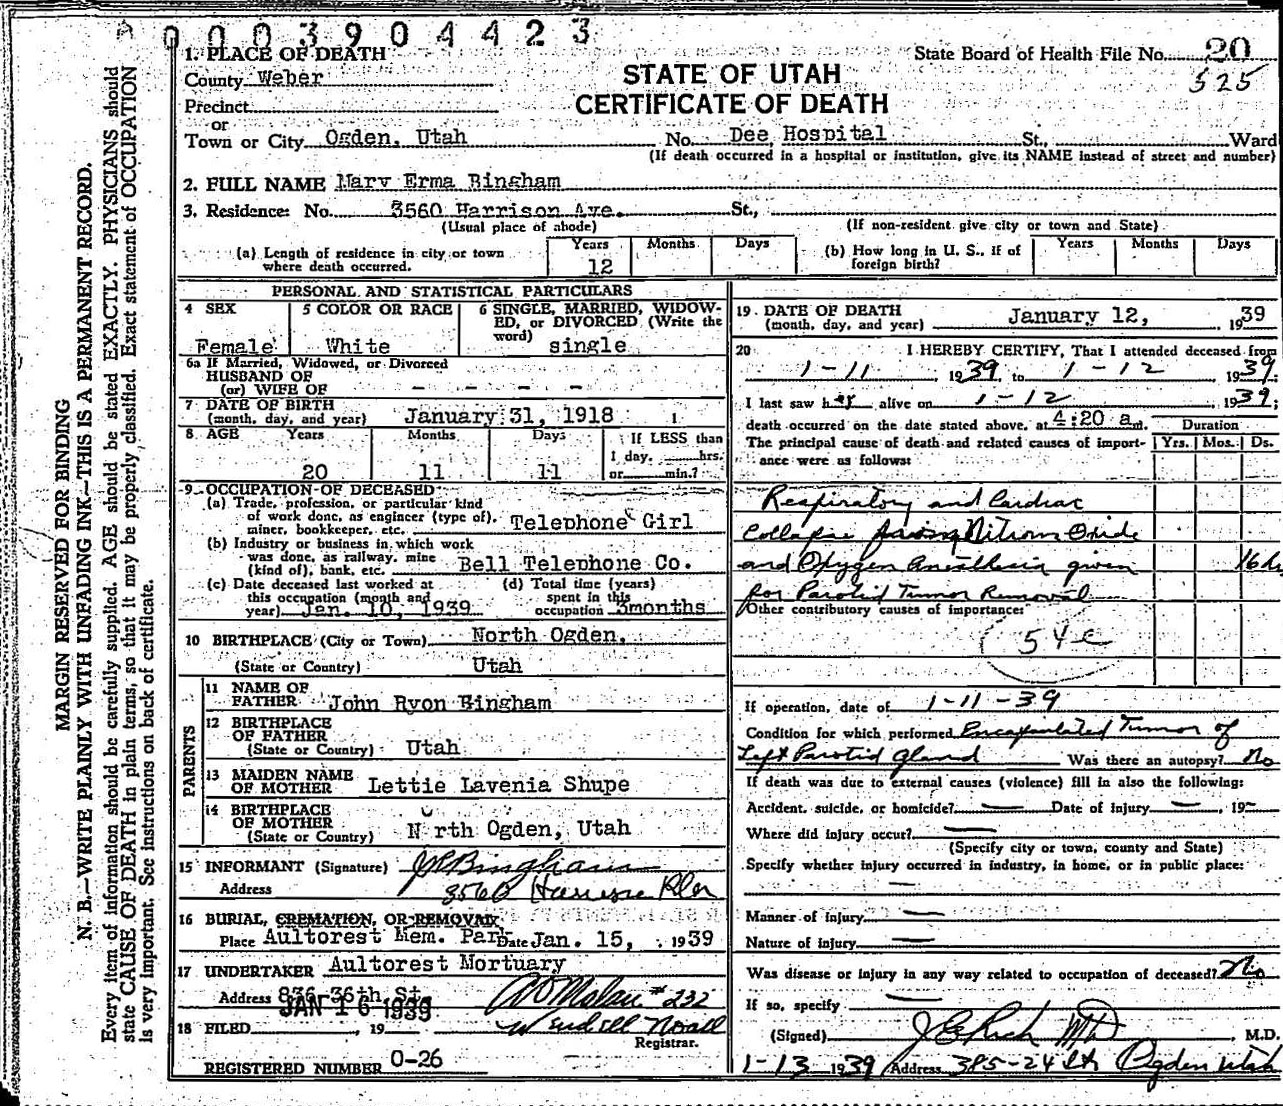 00003904423
1. PLACE OF DEATH
State Board of Health File No. 20
525
County Weber
STATE OF UTAH
CERTIFICATE OF DEATH
Precinct
or
Town or City Ogden, Utah No. Dee Hospital St., Ward
(If death occurred in a hospital or institution, give its NAME instead of street and number)
2. FULL NAME Mary Erma Bingham
3. Residence: No. 3560 Harrison Ave. St.,
(Usual place of abode) (If non-resident give city or town and State)
(a) Length of residence in city or town where death occurred. Years 12 Months Days
(b) How long in U. S., if of foreign birth? Years Months Days
MARGIN RESERVED FOR BINDING
N. B.—WRITE PLAINLY WITH UNFADING INK—THIS IS A PERMANENT RECORD.
Every item of information should be carefully supplied. AGE should be stated EXACTLY. PHYSICIANS should
state CAUSE OF DEATH in plain terms, so that it may be properly classified. Exact statement of OCCUPATION
is very important. See instructions on back of certificate.
PERSONAL AND STATISTICAL PARTICULARS
4 SEX
Female
5 COLOR OR RACE
White
6 SINGLE, MARRIED, WIDOW-
ED, or DIVORCED (Write the
word) single
6a If Married, Widowed, or Divorced
HUSBAND OF
(or) WIFE OF - - - - -
7 DATE OF BIRTH
(month, day, and year) January 31, 1918
8 AGE Years Months Days If LESS than
1 day, hrs.
20 11 11 or min.?
9 OCCUPATION OF DECEASED
(a) Trade, profession, or particular kind
of work done, as engineer (type of),
miner, bookkeeper, etc. Telephone Girl
(b) Industry or business in which work
was done, as railway, mine
(kind of), bank, etc. Bell Telephone Co.
(c) Date deceased last worked at
this occupation (month and
year) Jan. 10, 1939
(d) Total time (years)
spent in this
occupation 3months
10 BIRTHPLACE (City or Town) North Ogden,
(State or Country) Utah
PARENTS
11 NAME OF
FATHER John Ryon Bingham
12 BIRTHPLACE
OF FATHER
(State or Country) Utah
13 MAIDEN NAME
OF MOTHER Lettie Lavenia Shupe
14 BIRTHPLACE
OF MOTHER
(State or Country) North Ogden, Utah
15 INFORMANT (Signature) J R Bingham
Address 3560 Harrison Blvr
16 BURIAL, CREMATION, OR REMOVAL
Place Aultorest Mem. Park Date Jan. 15, 1939
17 UNDERTAKER Aultorest Mortuary
Address 836 36th St
JAN 16 1939
#232
18 FILED , 19 Wendell Noall
Registrar.
REGISTERED NUMBER 0-26
19 DATE OF DEATH
(month, day, and year) January 12, 1939
20 I HEREBY CERTIFY, That I attended deceased from
1-11 1939, to 1-12 1939.
I last saw her alive on 1-12 1939;
death occurred on the date stated above, at 4:20 a m. Duration
The principal cause of death and related causes of import-
ance were as follows: Yrs. Mos. Ds.
Respiratory and Cardiac
Collapse Nitrous Oxide
and Oxygen Anesthesia given 16
for Parotid Tumor Removal
Other contributory causes of importance:
54c
If operation, date of 1-11-39
Condition for which performed Encapsulated Tumor of
Left Parotid Gland Was there an autopsy? No
If death was due to external causes (violence) fill in also the following:
Accident, suicide, or homicide? — Date of injury — , 19-
Where did injury occur? —
(Specify city or town, county and State)
Specify whether injury occurred in industry, in home, or in public place:
—
Manner of injury —
Nature of injury —
Was disease or injury in any way related to occupation of deceased? No
If so, specify —
(Signed) Rich MD M.D.
1-13 1939 Address 385-24 St Ogden Utah